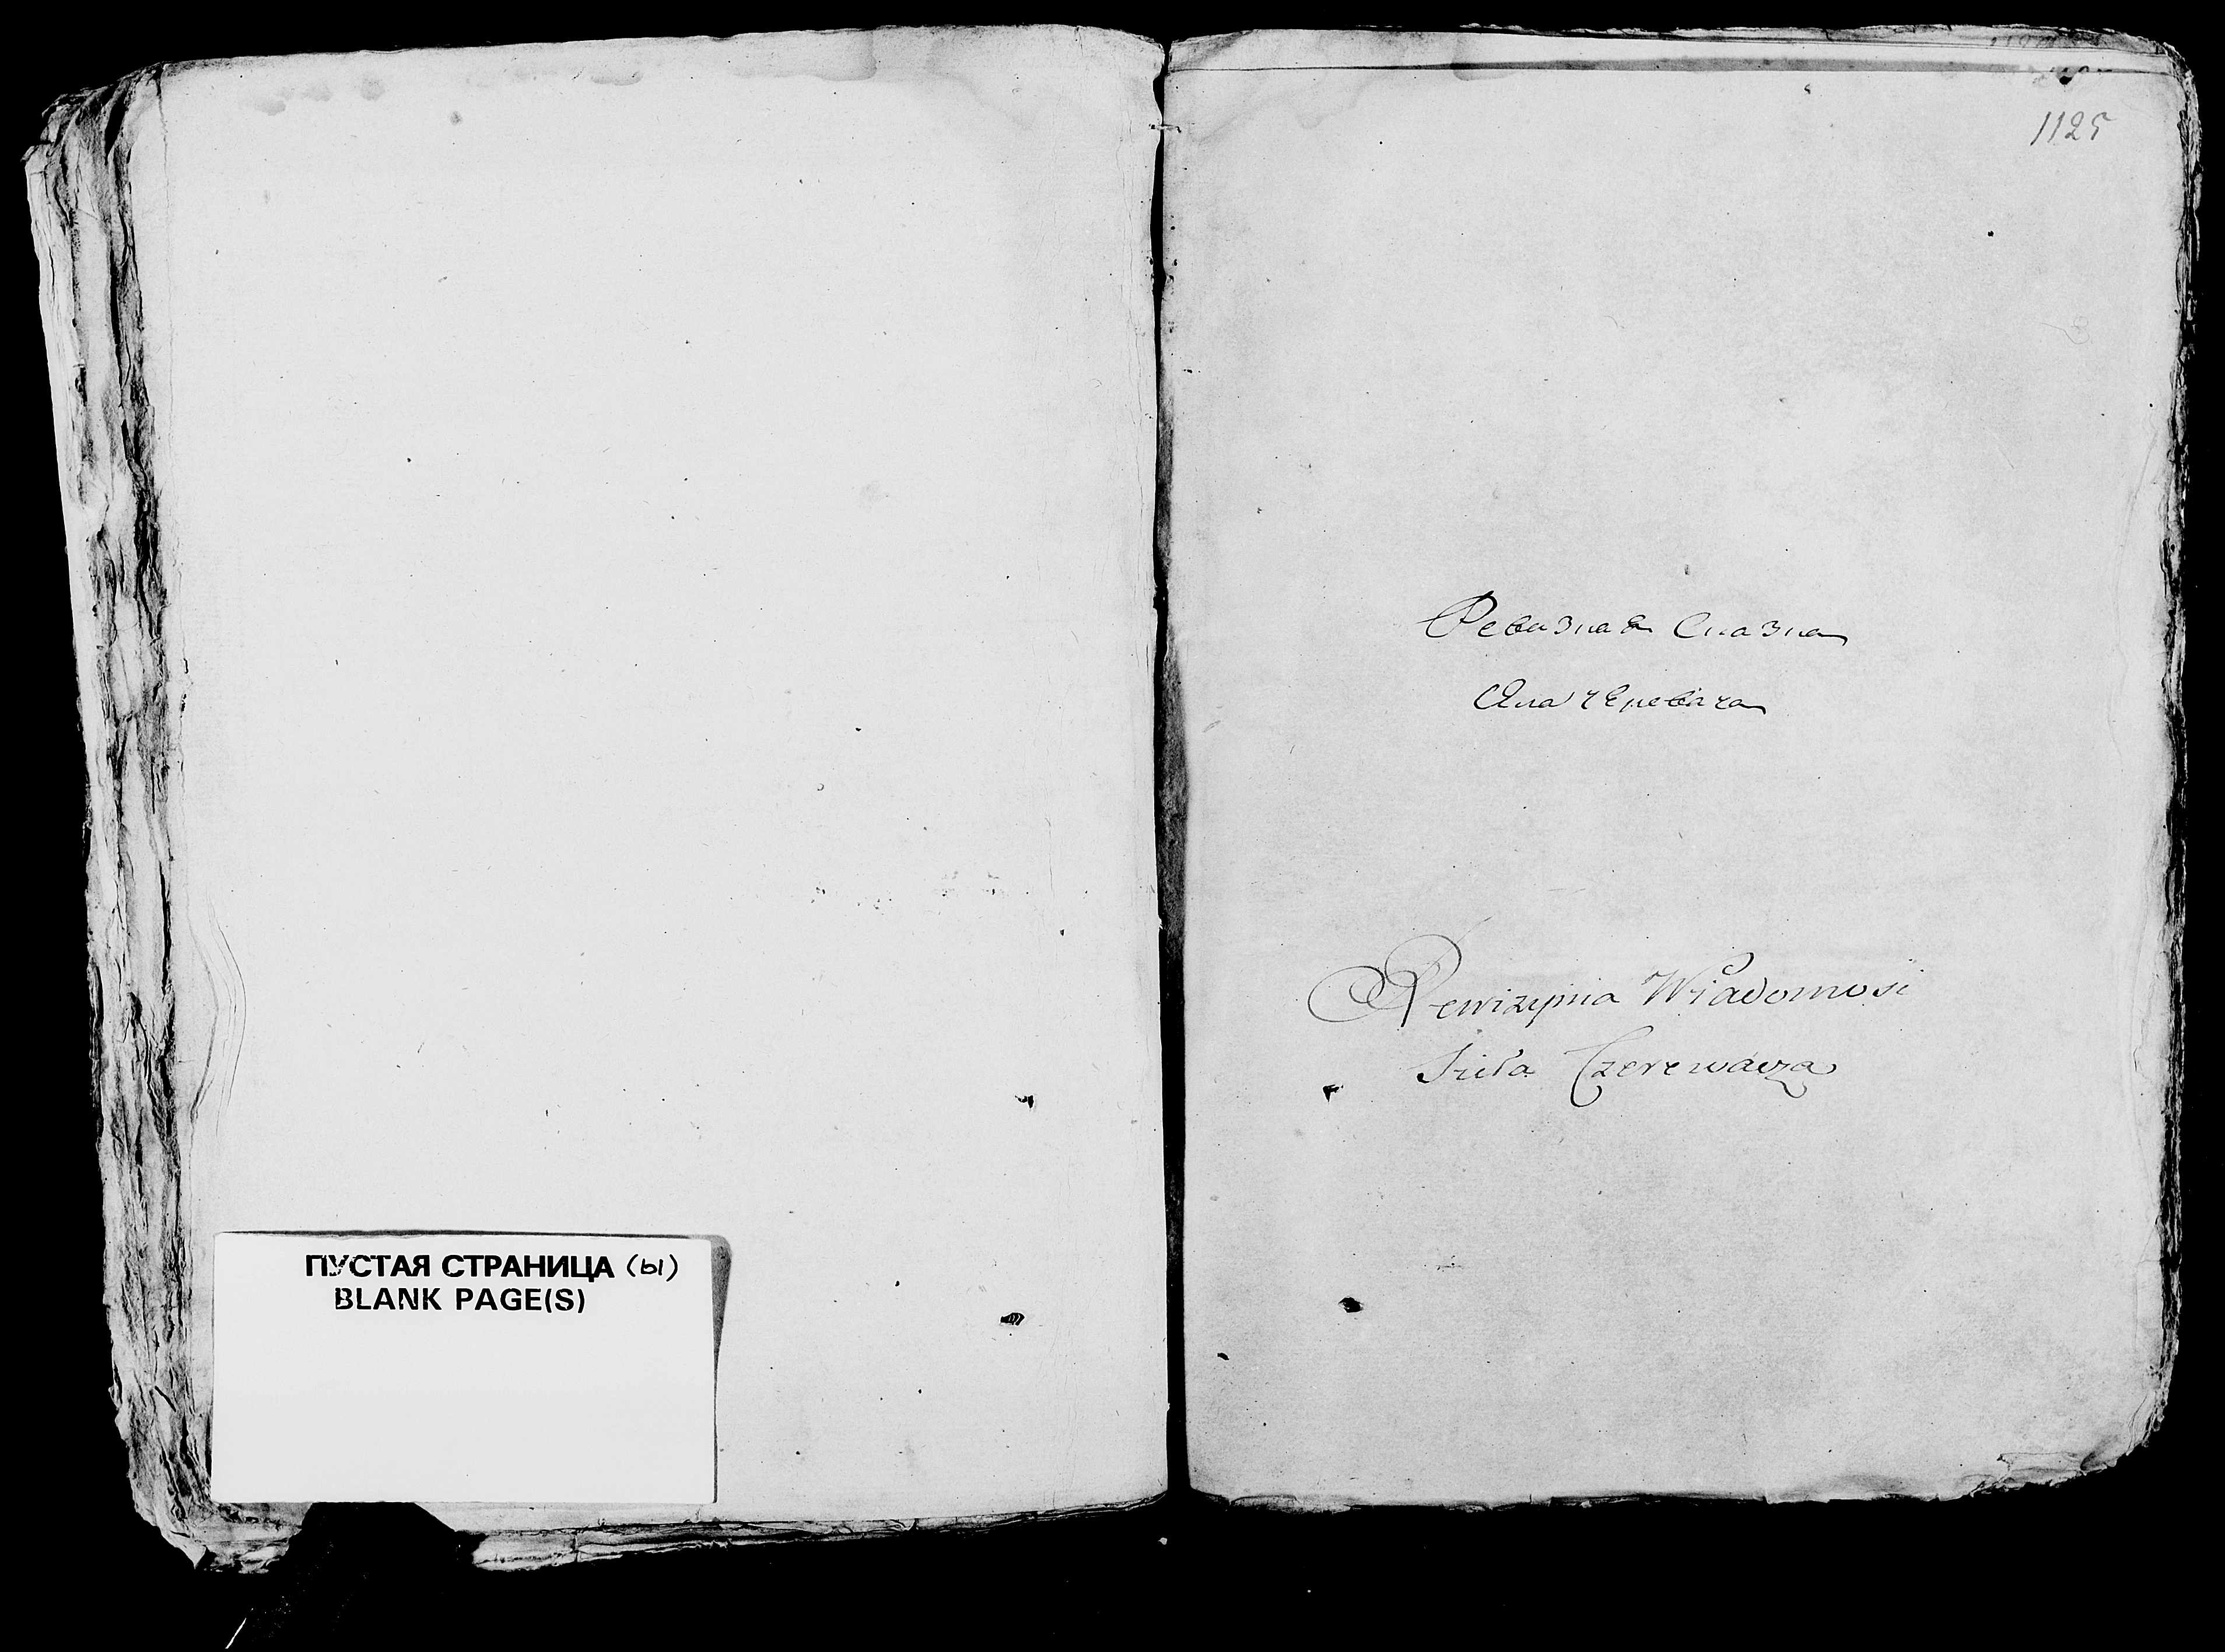 ПУСТАЯ СТРАНИЦА (ы)
BLANK PAGE(S)
1125
Ревизная Сказка
Села Черевача
Rewizyinia Wiadomość
Sieła Czerewacza